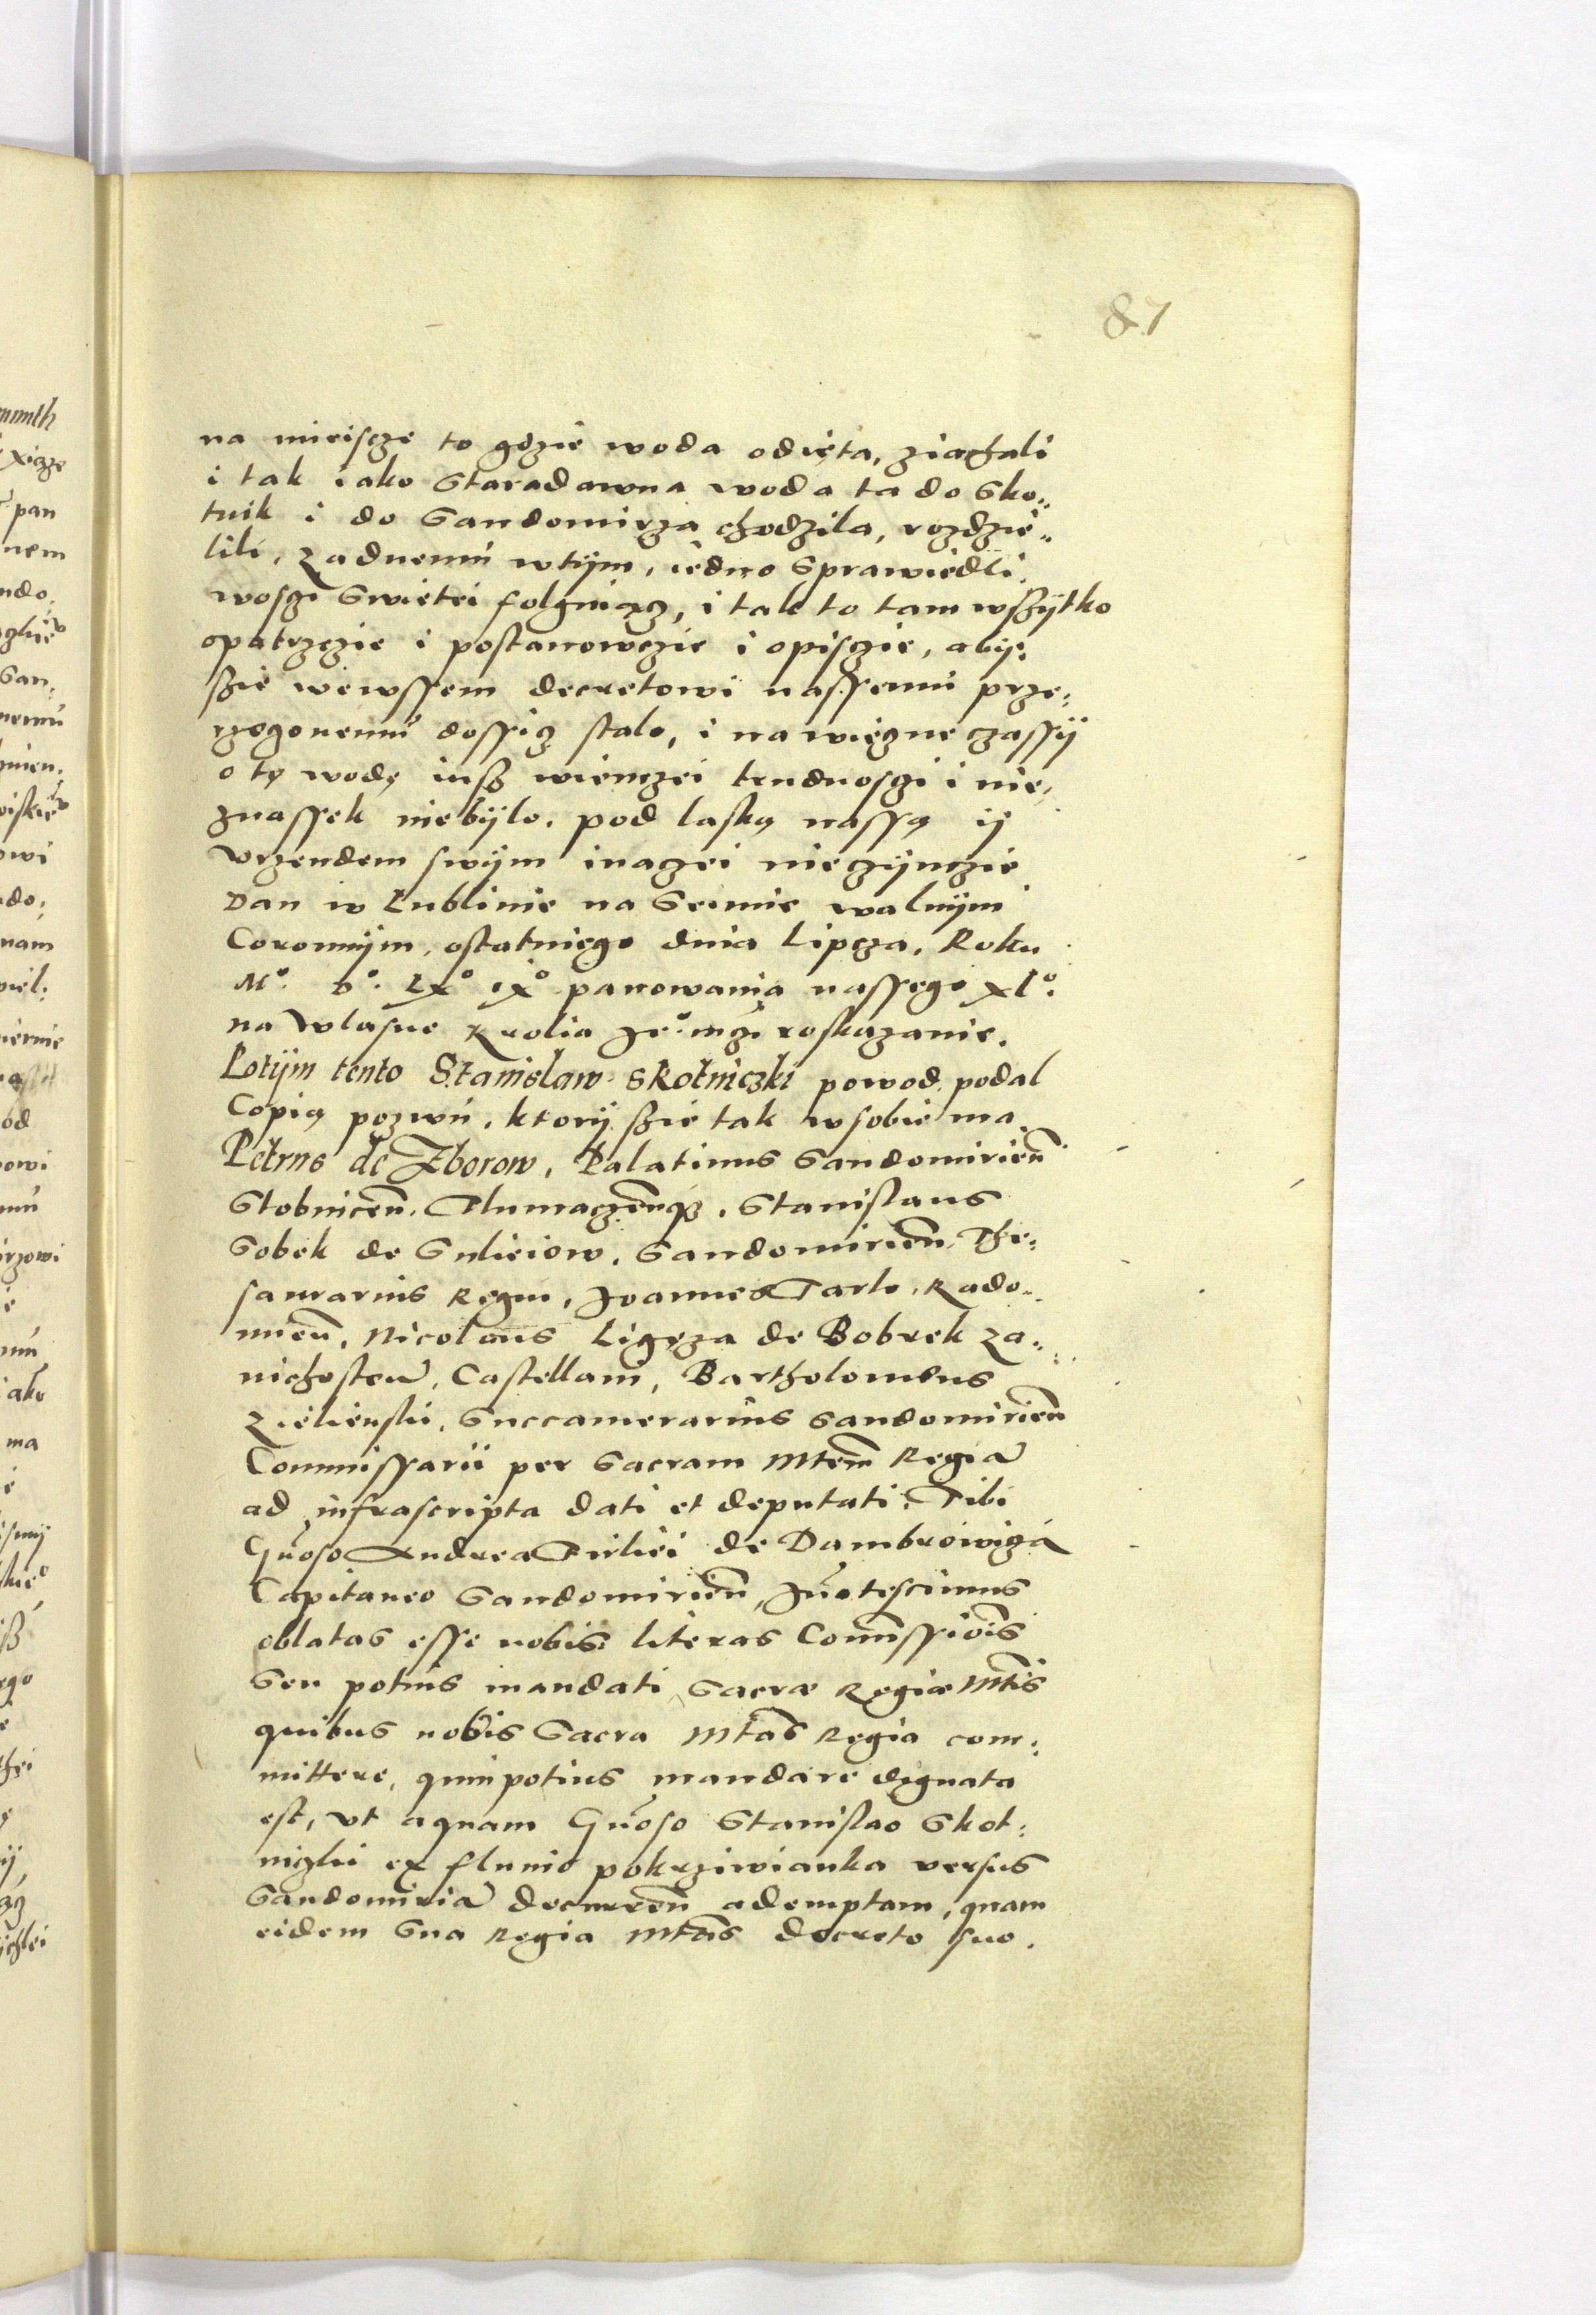 87
na mieiscze to gdzie woda odięta, ziachali
i tak iako Staradawna woda ta do Sko„
tnik i do Sandomirza chodzila, rozdzie„
lili, zadnemu wtÿm, iedno Sprawiedli
woszi Swiętei folguiącz, i tak to tam wszÿtko
opatrzczie i postanowczie i opisczie, abÿ:
szie wewssem decretowi nassemu prze:
rzeczonemu dossicz stalo, i na wieczne czassÿ
o tę wodę iusz wienczei trudnoszi i nie„
znassek niebÿlo. pod laską nassą ÿ
vrzendem swÿm inaczei nieczÿnczie
Dan w Lublinie na Seimie walnÿm
Coronnÿm, ostatniego dnia Lipcza, Roku
Mo. Do. LXo iXo panowania nassego XLo.
na wlasne Krolia Jeo mczi roskazanie.
Potÿm tento Stanislaw Skotniczki powod podal
Copią pozwu, ktorÿ szie tak wsobie ma
Petrus de Zborow, Palatinus Sandomirien̄
Stobnicen̄. Tlumaczen̄q3. Stanislaus
Sobek de Sulieiow. Sandomirien̄ The:
saurarius Regni, Joannes Tarlo, Rado„
mien̄, Nicolaus Ligęza de Bobrek Za„
nichosten̄, Castellani, Bartholomeus
Zielienski, Succamerarius Sandomirien̄
Commissarii per Sacram Mtem Regiā
ad infrascripta dati et deputati. Tibi
Gn̄oso Andreæ Firliei de Dambrowicza
Capitaneo Sandomirien̄, Jn̄otescimus
oblatas esse nobis literas Com̄issiois
Seu potius mandati Sacræ Regiæ Mtis
quibus nobis Sacra Mtas Regia com:
mittere, quinpotius mandare dignata
est, vt aquam Gn̄oso Stanislao Skot:
niczki ex fluuio pokrziwianka versus
Sandomiriā decurren̄ ademptam, quam
eidem Sua Regia Mtas decreto suo.